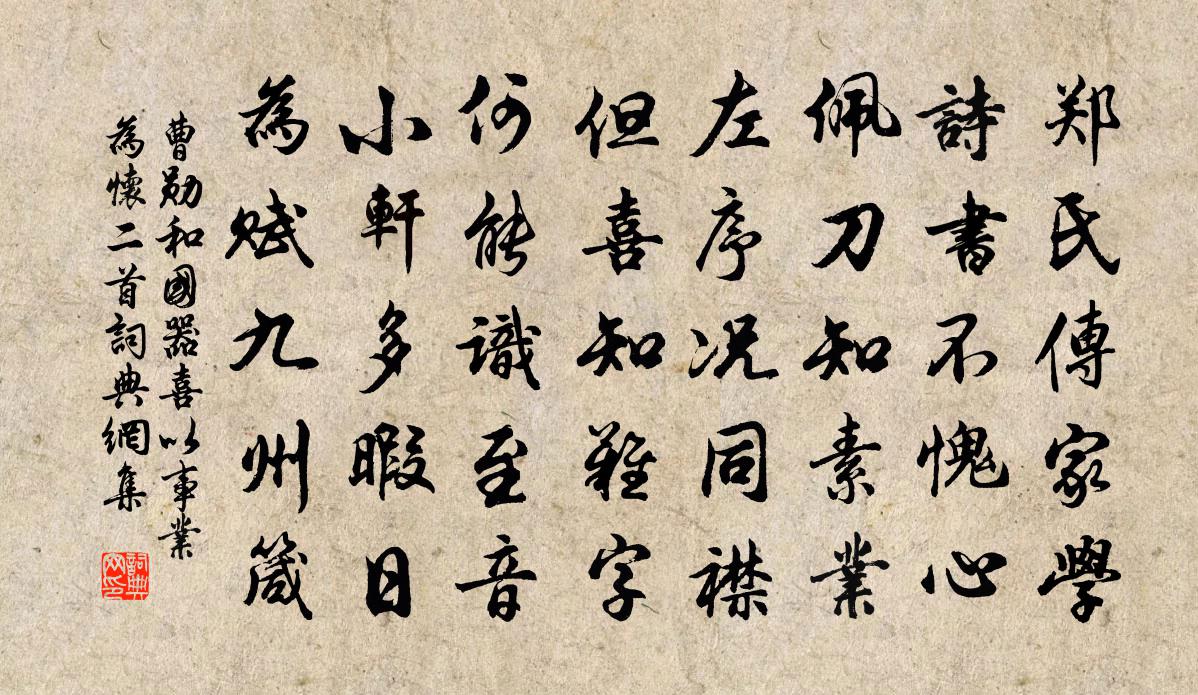 郑氏傳家學
詩書不愧心
佩刀知素業
左序況同襟
但喜知難字
何能識至音
小軒多暇日
為賦九州箴
曹勛和國器喜以事業
為懷二首詞典網集
詞典
网印